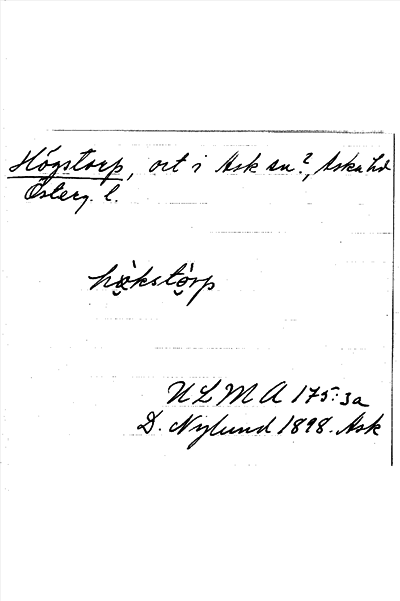 Högstorp, ort i Ask sn.?, Aska hd
Österg. l.
hö̀kstò̤rp
ULMA 175:3a
D. Nylund 1898. Ask